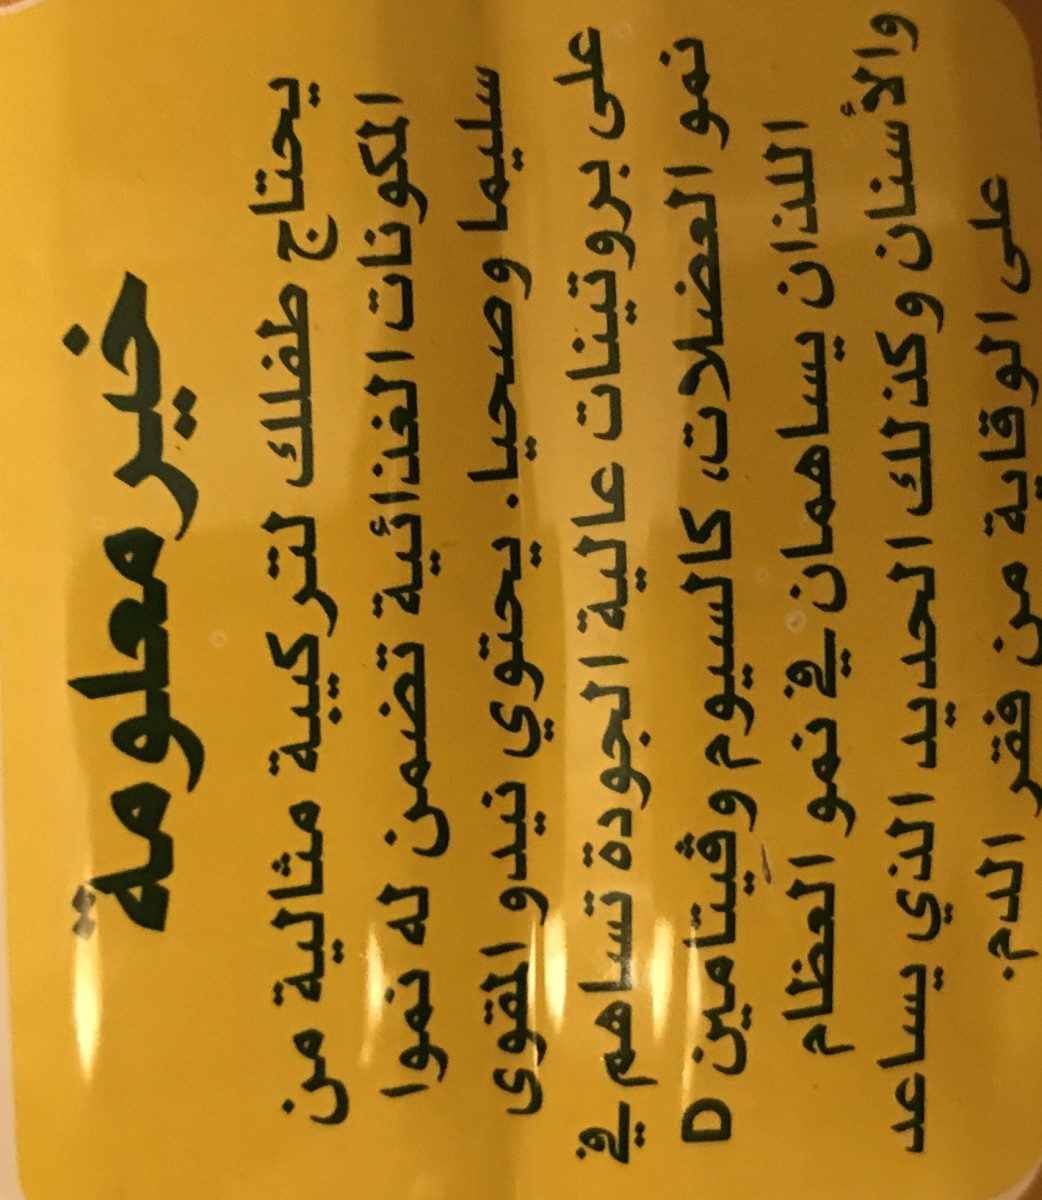 خير معلومة
يحتاج طفلك لتركيبة مثالية من
المكونات الغذائية تضمن له نموا
سليما وصحيا. يحتوي نيدو المقوى
على بروتينات عالية الجودة تساهم في
نمو العضلات، كالسيوم وڤيتامين D
اللذان يساهمان في نمو العظام
والأسنان وكذلك الحديد الذي يساعد
على الوقاية من فقر الدم.